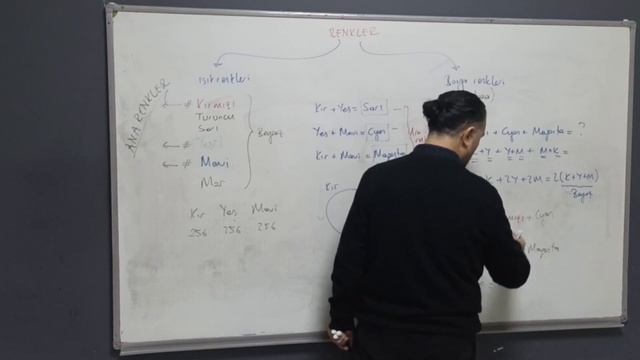 RENKLER
Işık renkleri
Boya renkleri
ANA RENKLER
# Kırmızı
Turuncu
Sarı
# Yeşil
# Mavi
Mor
Beyaz
Kır Yeş Mavi
256 256 256
Kır + Yeş = Sarı
Yeş + Mavi = Cyan
Kır + Mavi = Magenta
Kır
+ Cyan + Magenta = ?
+ Y + Y + M + M + K =
K + 2Y + 2M = 2(K + Y + M)
Beyaz
+ Cyan
Magenta